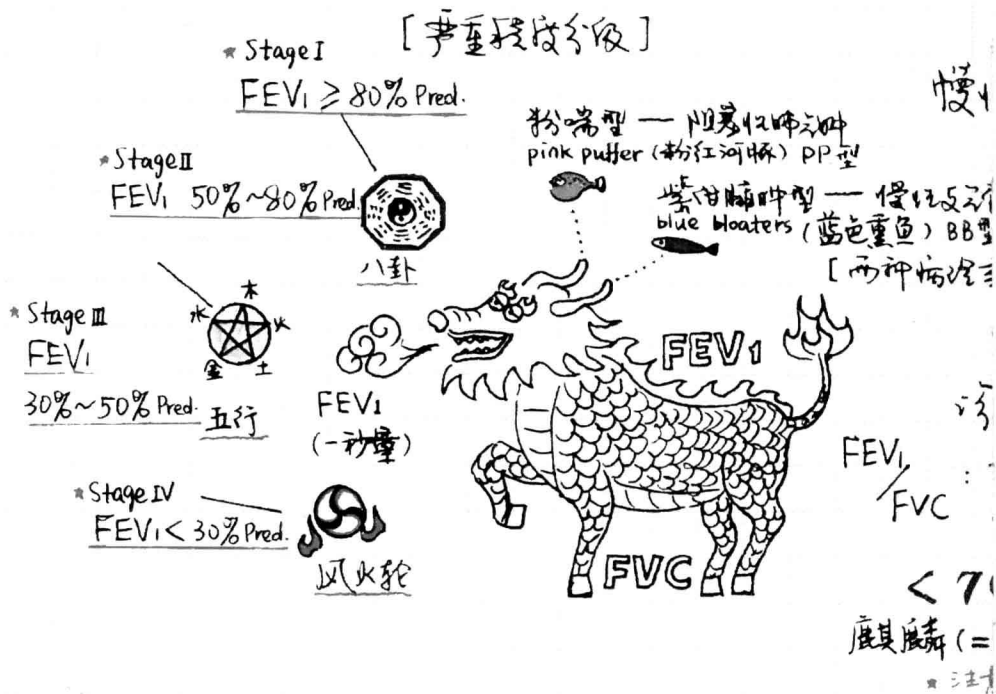 [严重程度分级]
* Stage I
FEV₁ ≥ 80% Pred.
* Stage II
FEV₁ 50%~80% Pred.
八卦
* Stage III
FEV₁
30%~50% Pred.
木
水
火
金
土
五行
* Stage IV
FEV₁ < 30% Pred.
风火轮
FEV1
(一秒量)
粉喘型 — 阻塞性肺气肿
pink puffer (粉红河豚) PP型
紫绀臃肿型 — 慢性支气
blue bloaters (蓝色重鱼) BB型
[两种病
FEV1
FVC
慢
FEV₁
/FVC
< 7
麒麟 (=
* 注